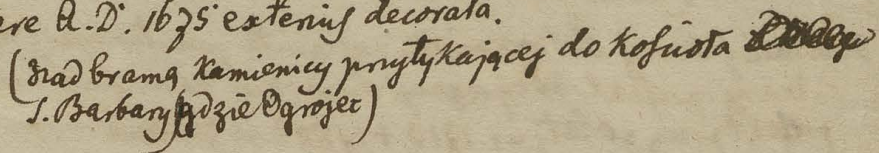 ere A.D. 1675 exterius decorata.
(Nad bramą Kamienicy przytykającej do Kościoła
S. Barbary gdzie Ogrojec)